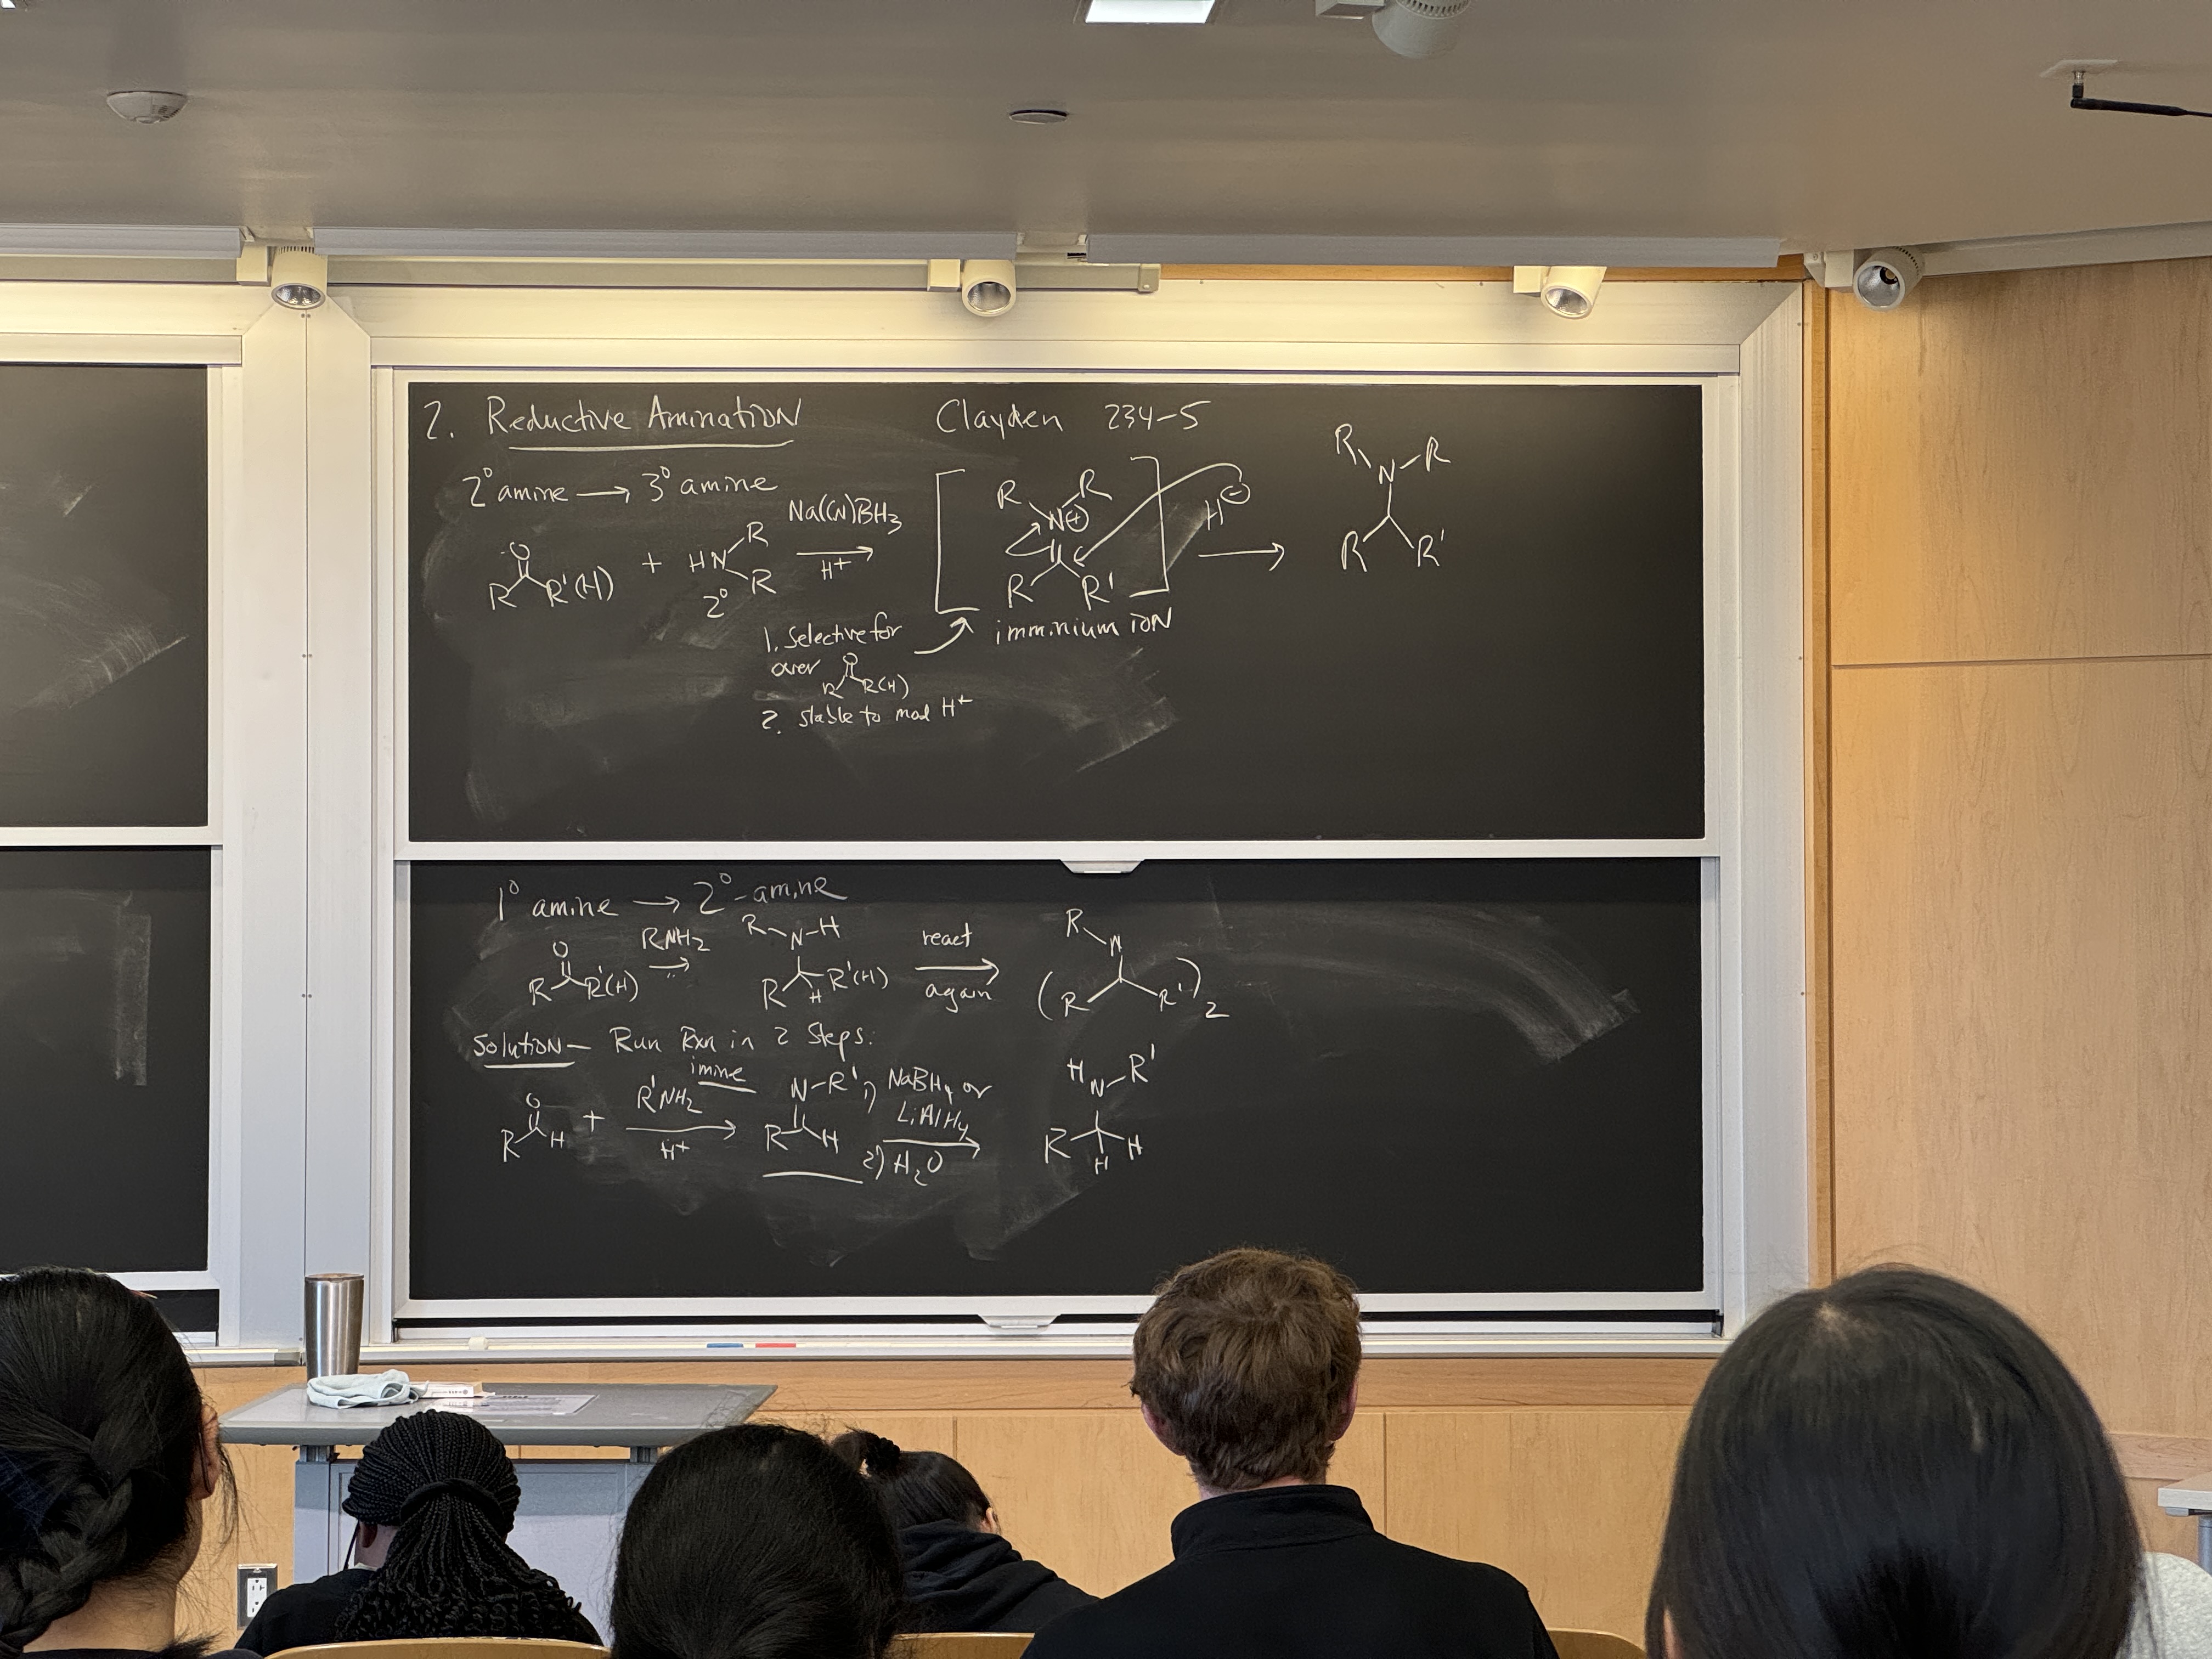 2. Reductive Amination
Clayden 234-5
2° amine → 3° amine
Na(CN)BH3
H+
O
R R'(H)
+
HN R
R
2°
R R
N⊕
R R'
imminium ion
H⊖
R N R
R R'
1. Selective for
over
O
R R(H)
2. stable to mod H+
1° amine → 2°-amine
O
R R'(H)
RNH2
R N-H
R R'(H)
H
react
again
R N
(R R')2
Solution - Run Rxn in 2 Steps:
O
R H
+
R'NH2
H+
imine
N-R'
R H
1) NaBH4 or
LiAlH4
2) H2O
H N-R'
R H
H